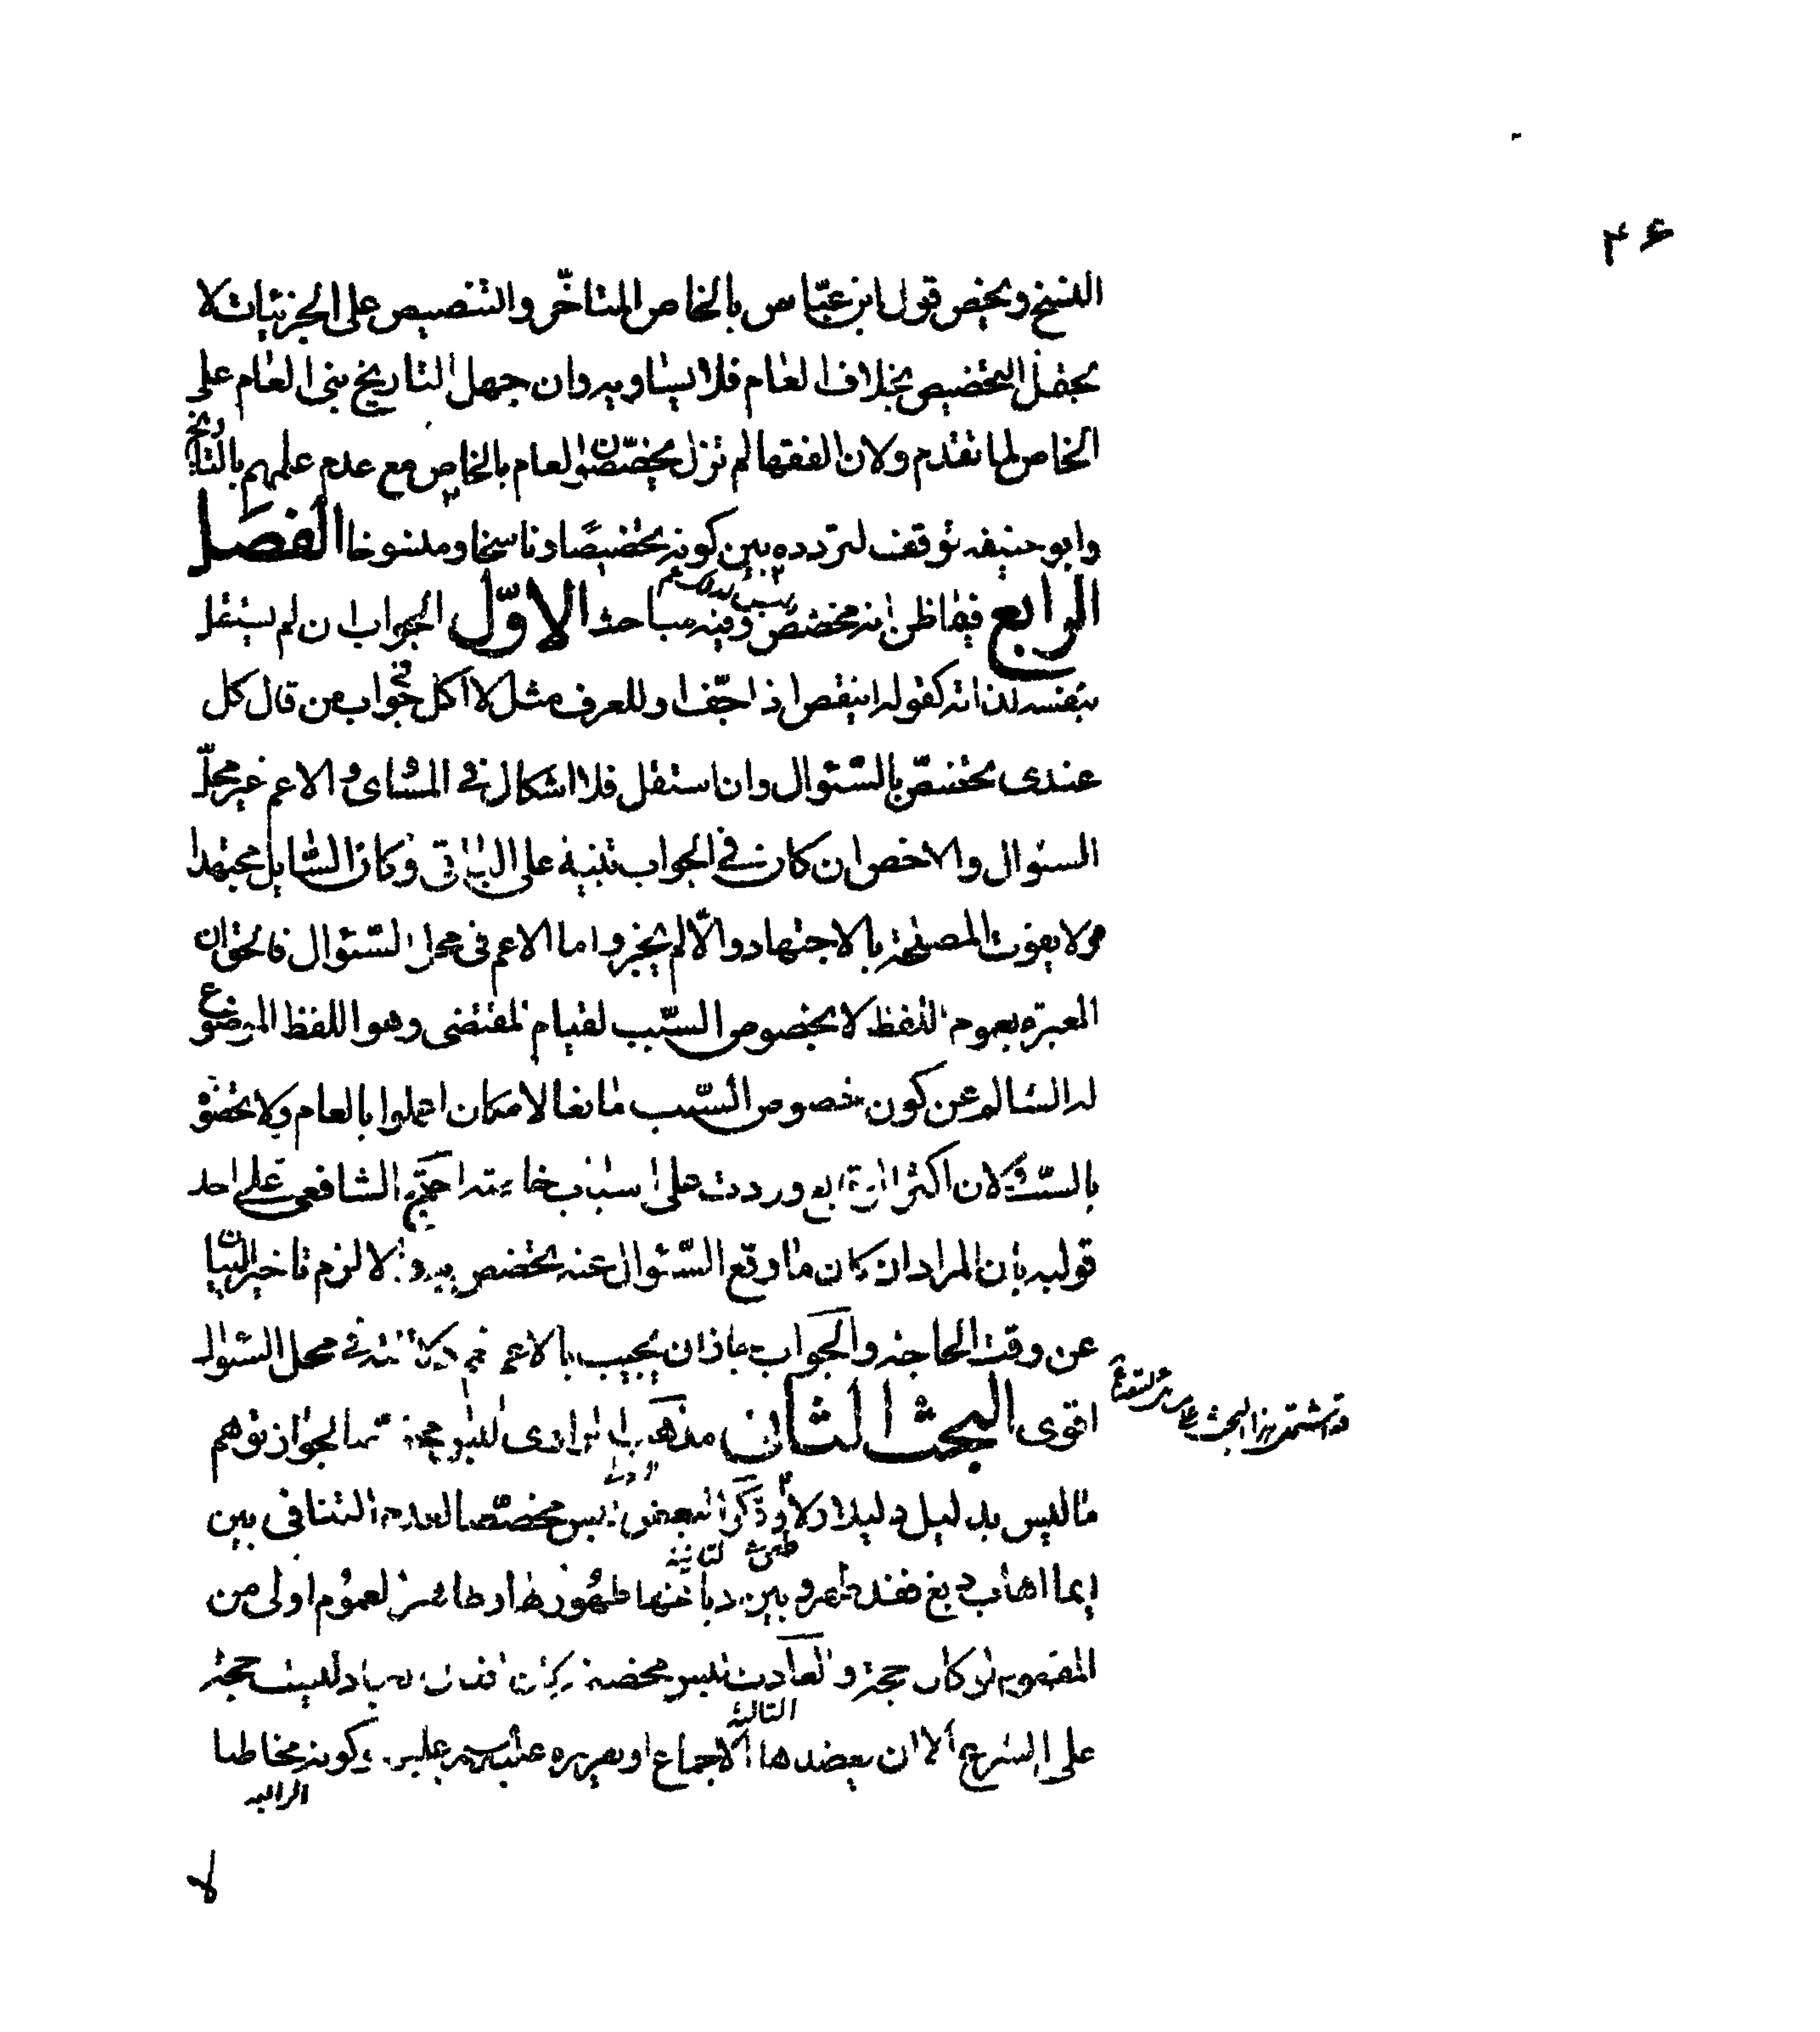 ۴۶
النسخ ويخص قول ابن عبّاس بالخاص المتاخّر والتنصيص على الجزئيات لا
يحتمل التخصيص بخلاف العام فلا يساويه وان جهل التاريخ بنى العام على
الخاص لما تقدم ولان الفقها لم تزل يخصّصون العام بالخاص مع عدم علمهم بالتاريخ
وابو حنيفه توقف لتردده بين كونه تخصيصًا وناسخا ومنسوخا الفصل
الرابع فيما ظن انه مخصص وفيه مباحث الاوّل الجواب ان لم يستقل
بنفسه لذاته كقوله اينقص اذا جّف او للعرف مثل لا اكل في جواب من قال كل
عندى يختصّ بالسّئوال وان استقل فلا اشكال في المساوى والاعم في غير محلّ
السئوال والاخص ان كان في الجواب تنبيه على الباقى وكان السّايل مجتهدا
ولا يفوت المصلحة بالاجتهاد والّا لم يجز واما الاعم فى محل السّئوال فالحق ان
العبرة بعموم اللفظ لا بخصوص السّبب لقيام المقتضى وهو اللفظ الموضوع
له السّالم عن كون خصوص السّبب مانعا لامكان اعملوا بالعام ولا تخصّو
بالسّبب ولان اكثر الوقايع وردت على اسباب خاصة احتج الشافعى على احد
قوليه بان المراد ان كان ما وقع السّئوال عنه يختص به والا لزم تاخير البيان
عن وقت الحاجة والجواب جاز ان يجيب بالاعم نعم دلالته في محل السّئوال
اقوى البحث الثانى مذهب الراوى ليس بحجة لجواز توهم
ما ليس بدليل دليلا وذكر البعض ليس مخصّصا لعدم التنافى بين
ايما اهاب دبغ فقد طهر وبين دباغها طهورها العموم اولى من
المفهوم لو كان حجة والعادة ليس مخصصة افعال العباد ليست حجة
على الشرع الا ان يعضدها الاجماع او تقريره عليه وكونه مخاطبا
الثالثة
الرابعة
لا